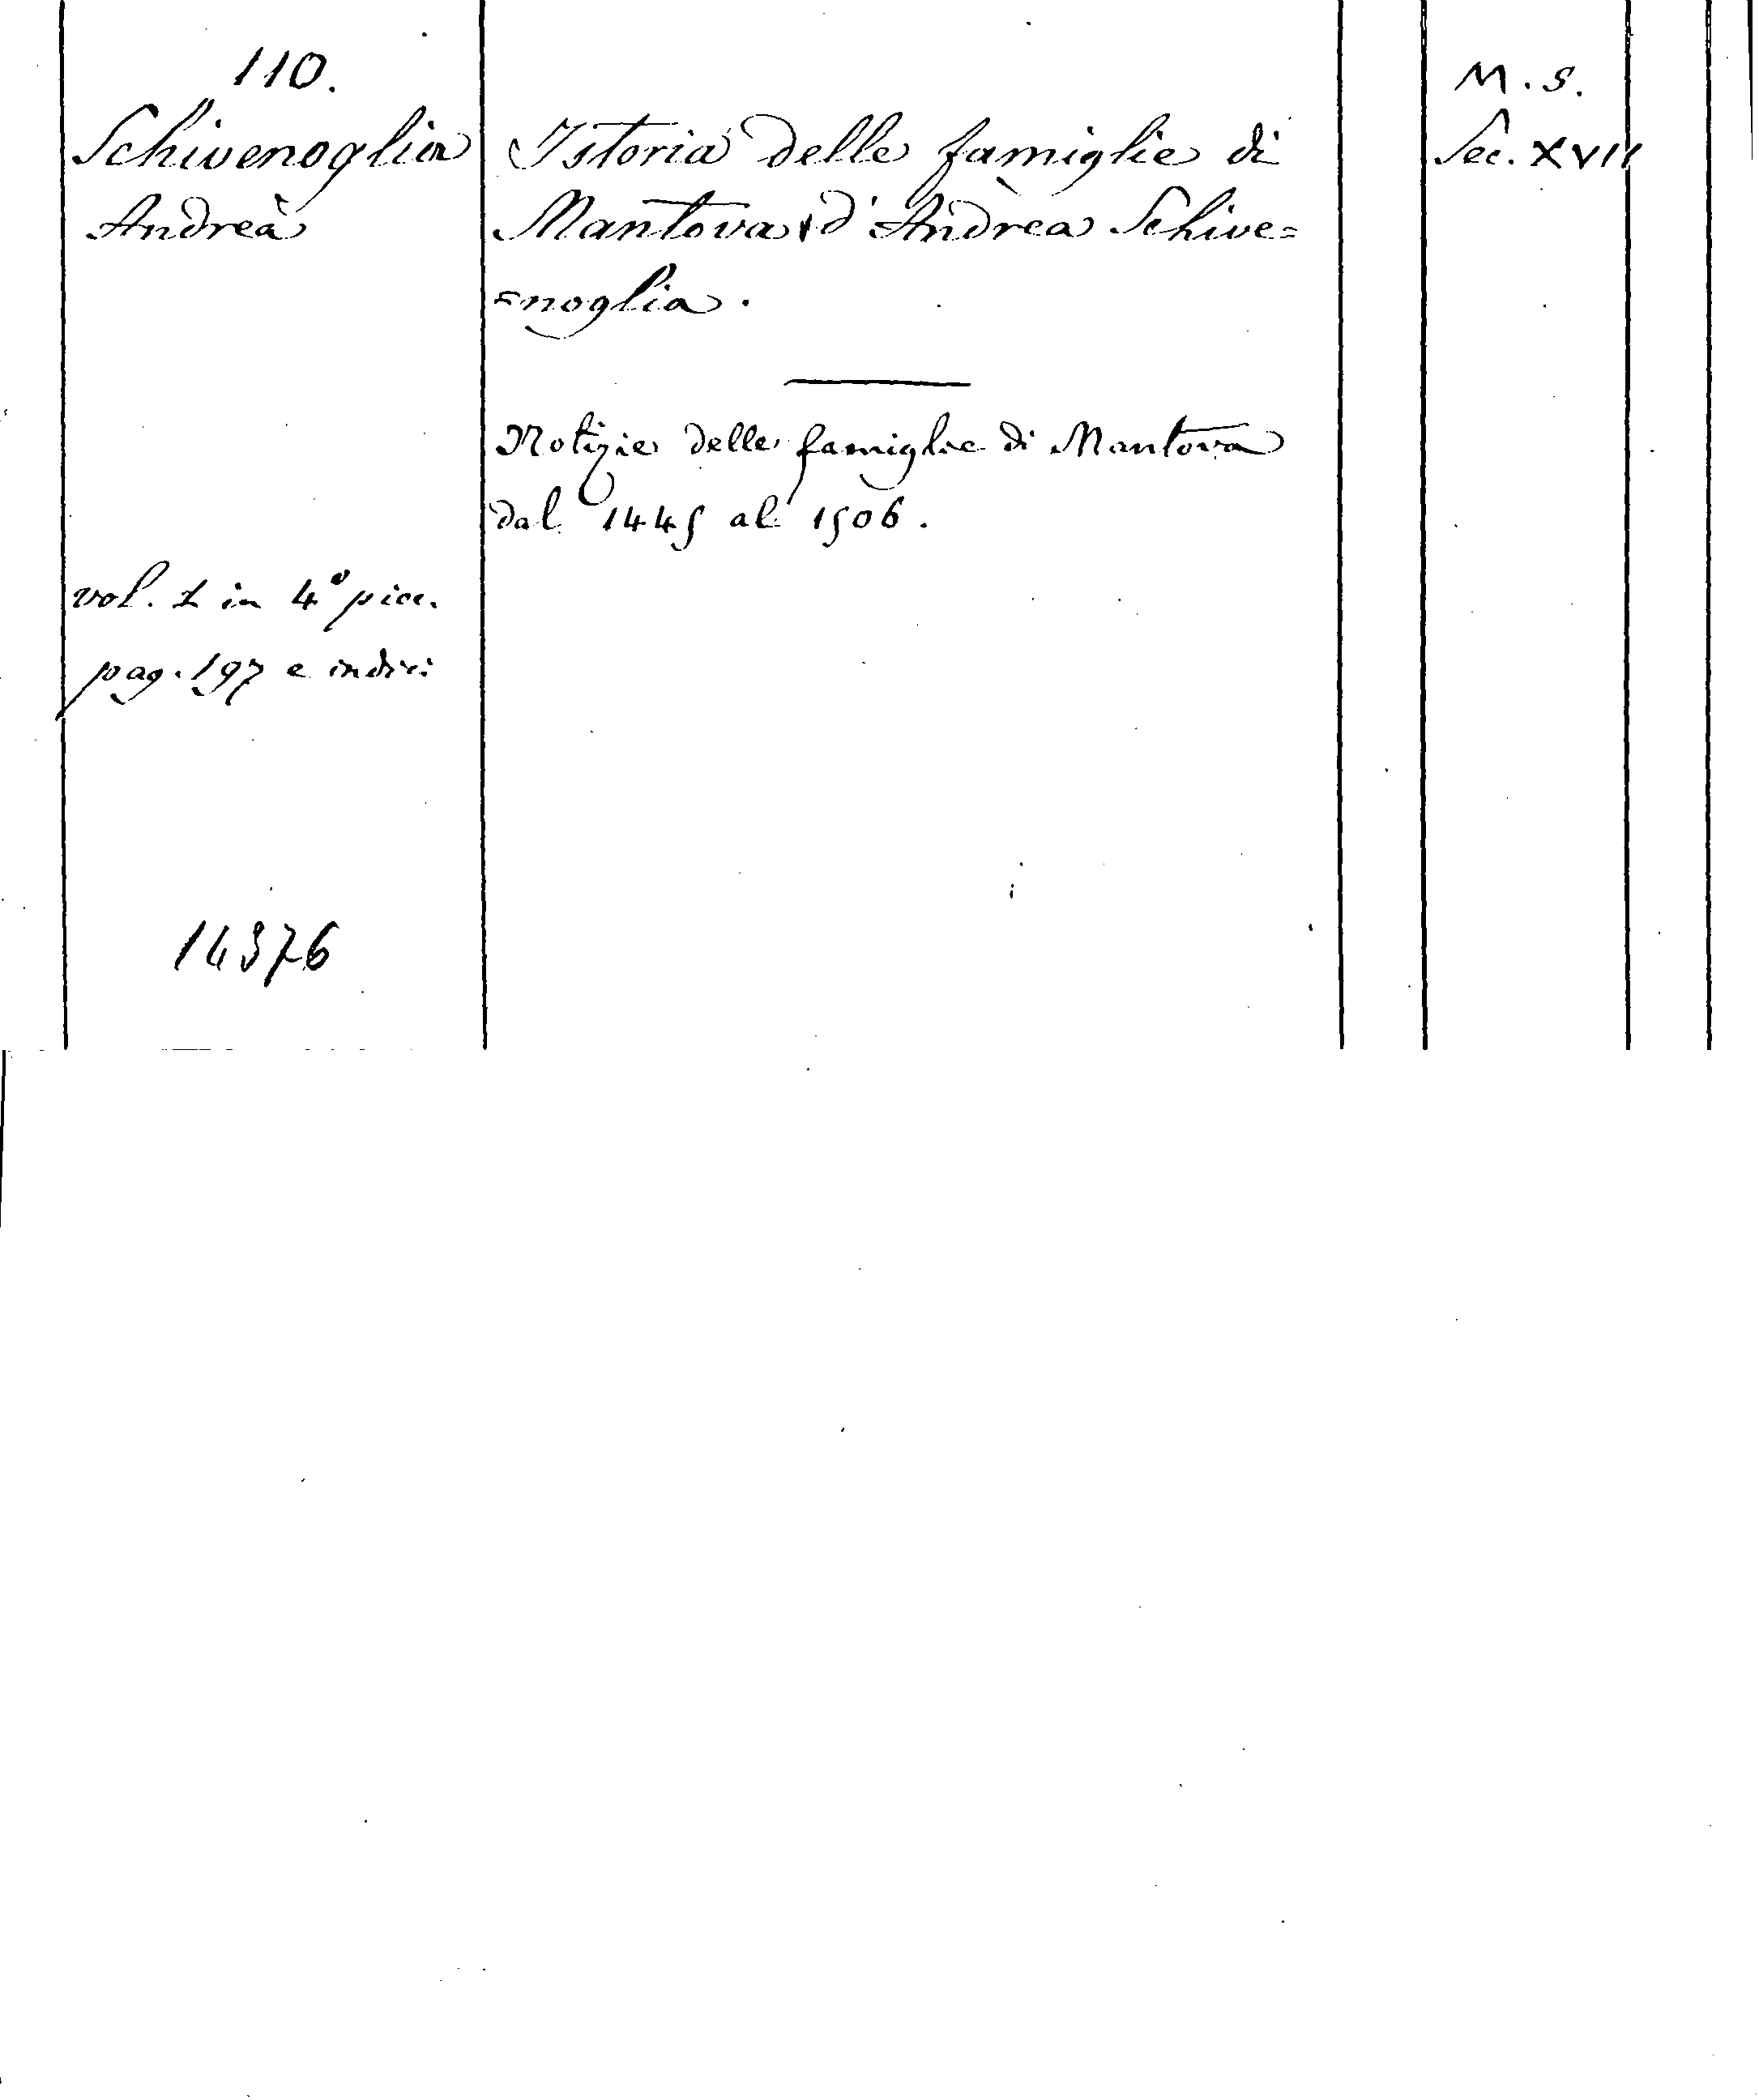 110.
Schivenoglia
Andrea
Istoria delle famiglie di
Mantova d'Andrea Schive=
=noglia.
Notizie delle famiglie di Mantova
dal 1445 al 1506.
vol. 1 in 4° picc.
pag. 197 e indici
14376
M. S.
Sec. XVII